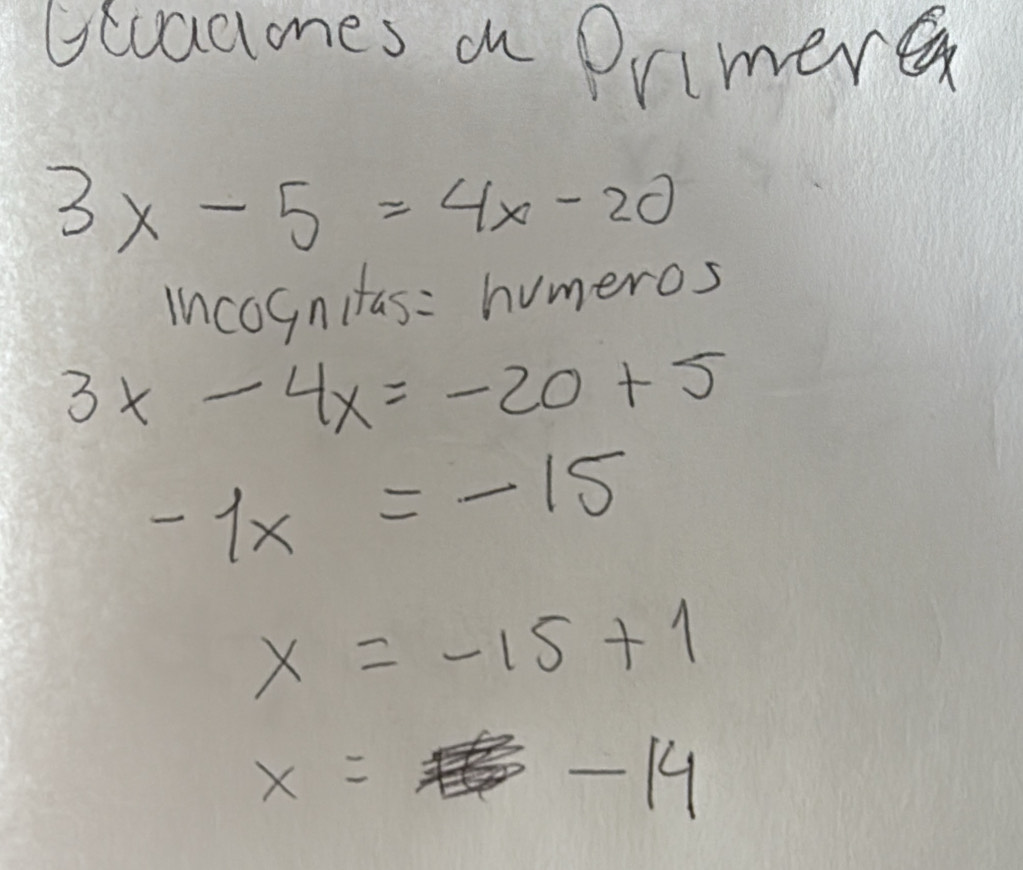 Ecuaciones de Primer
3x - 5 = 4x - 20
incognitas = numeros
3x - 4x = -20 + 5
-1x = -15
x = -15 + 1
x = -14